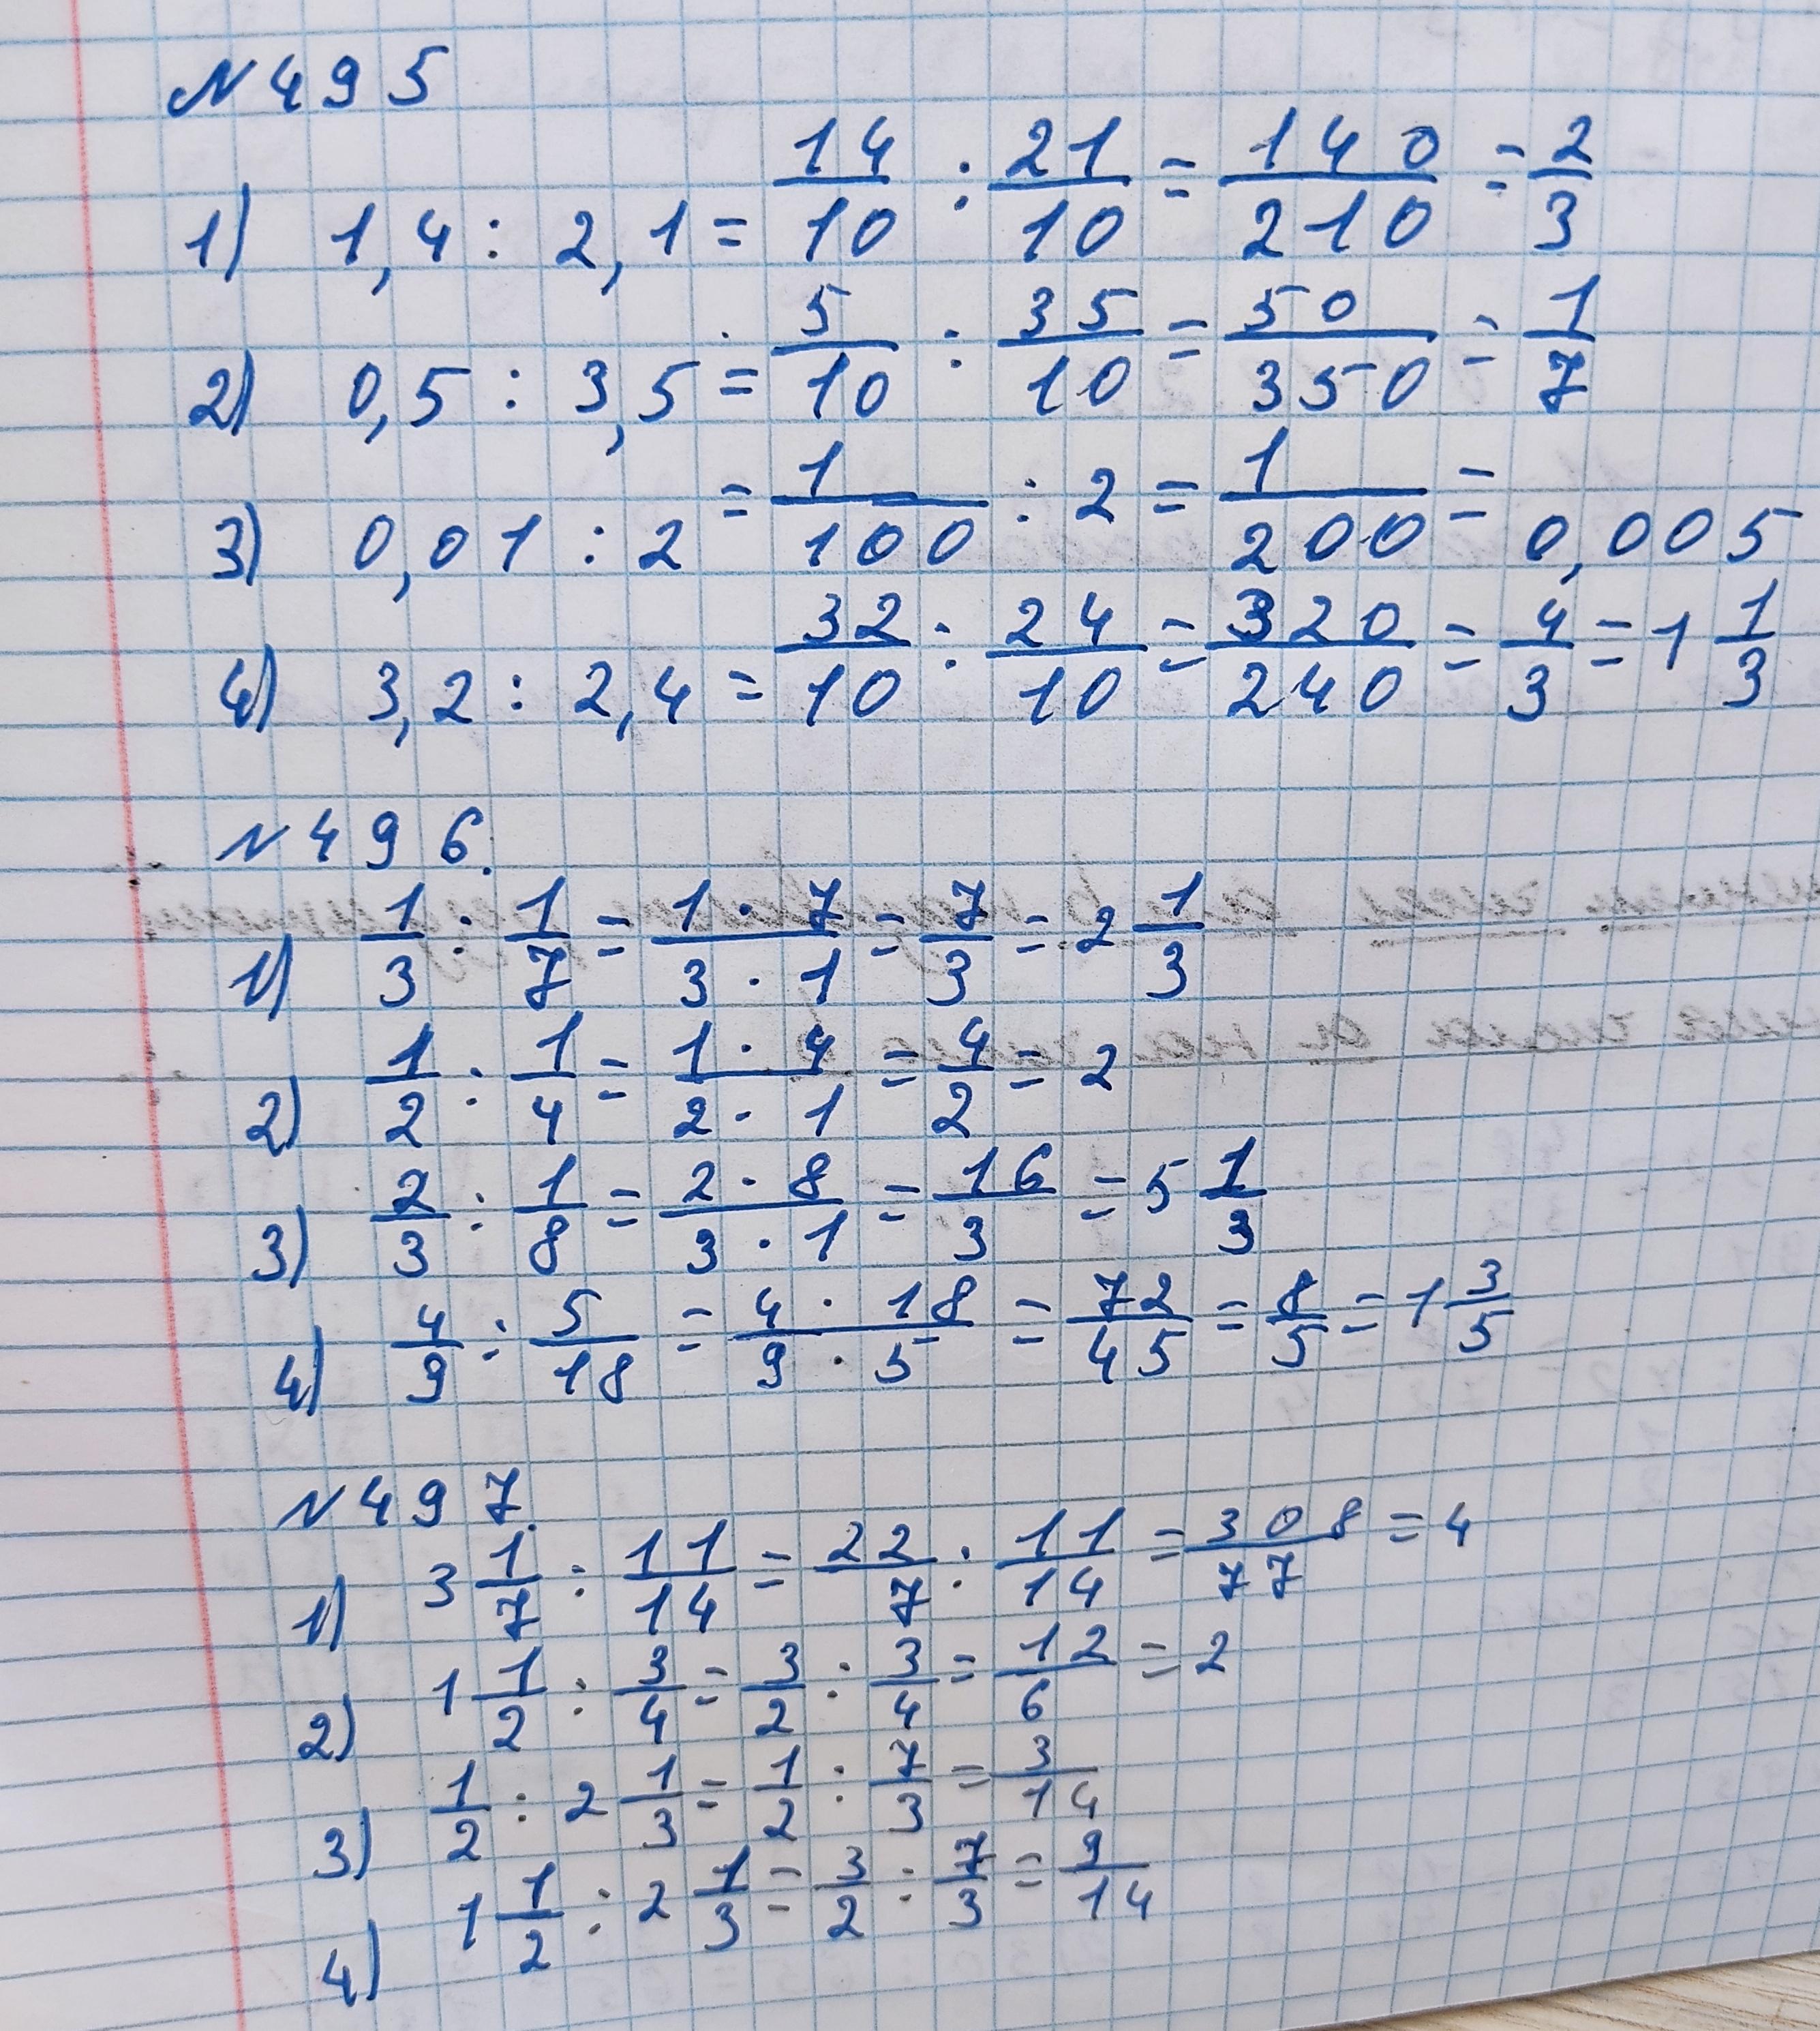 № 495
1) 1,4 : 2,1 = 14/10 : 21/10 = 140/210 = 2/3
2) 0,5 : 3,5 = 5/10 : 35/10 = 50/350 = 1/7
3) 0,01 : 2 = 1/100 : 2 = 1/200 = 0,005
4) 3,2 : 2,4 = 32/10 : 24/10 = 320/240 = 4/3 = 1 1/3
№ 496.
1) 1/3 : 1/7 = 1 · 7/3 · 1 = 7/3 = 2 1/3
2) 1/2 : 1/4 = 1 · 4/2 · 1 = 4/2 = 2
3) 2/3 : 1/8 = 2 · 8/3 · 1 = 16/3 = 5 1/3
4) 4/9 : 5/18 = 4 · 18/9 · 5 = 72/45 = 8/5 = 1 3/5
№ 497.
1) 3 1/7 : 11/14 = 22/7 : 11/14 = 308/77 = 4
2) 1 1/2 : 3/4 = 3/2 : 3/4 = 12/6 = 2
3) 1/2 : 2 1/3 = 1/2 : 7/3 = 3/14
4) 1 1/2 : 2 1/3 = 3/2 : 7/3 = 9/14